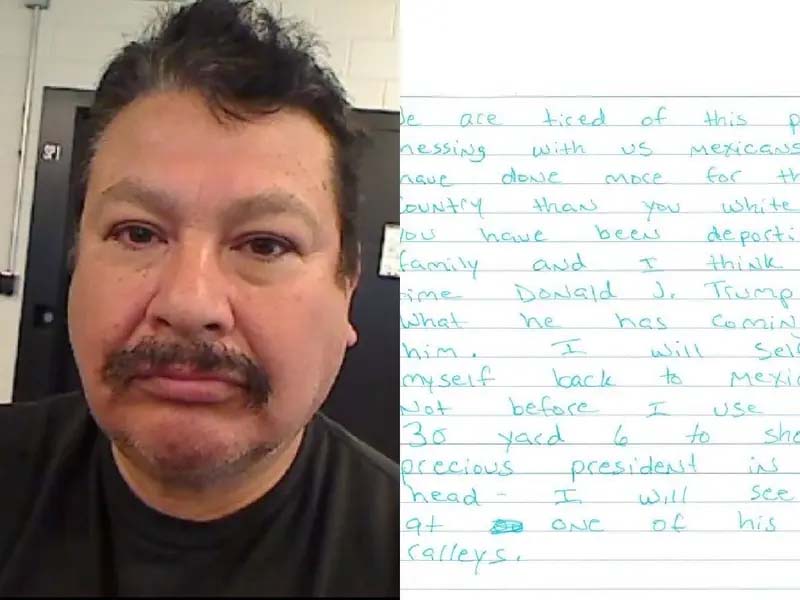 SP1
e are tired of this p
messing with us mexicans
have done more for th
ountry than you white
ou have been deporti
family and I think
ime Donald J. Trump
what he has coming
him. I will self
myself back to mexic
Not before I use
30 yard 6 to sho
precious president in
head - I will see
at one of his
ralleys.